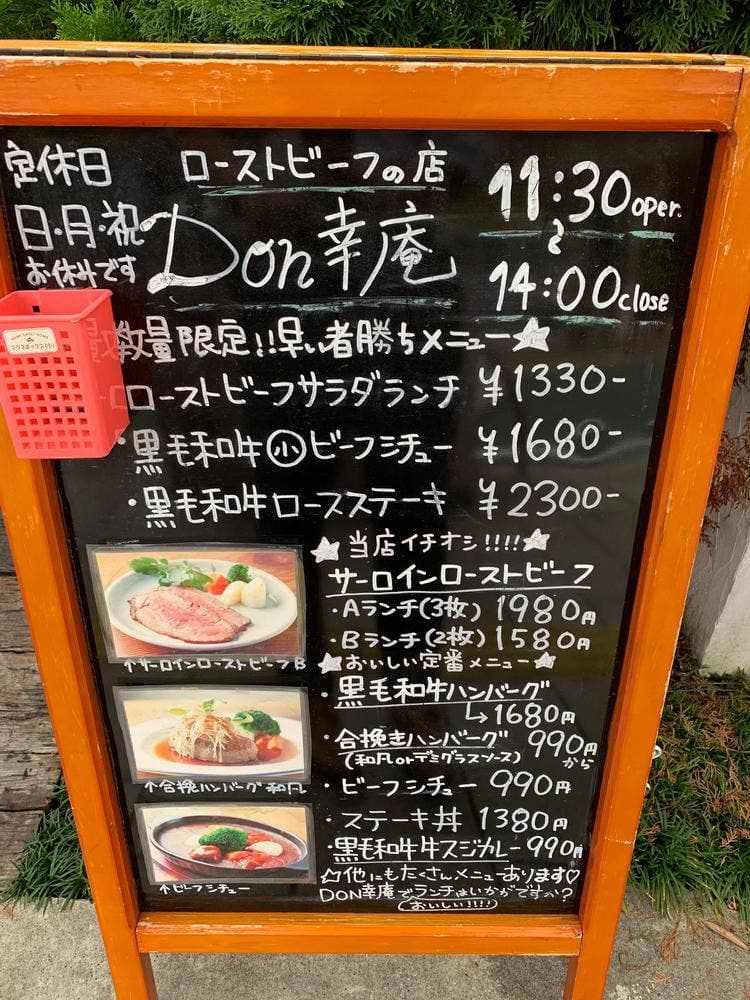 定休日
日・月・祝
お休みです
ローストビーフの店
Don幸庵
11:30 open
〜
14:00 close
マグネボックス(小)
数量限定!!早い者勝ちメニュー☆
ローストビーフサラダランチ ¥1330-
・黒毛和牛㊙ビーフシチュー ¥1680-
・黒毛和牛ロースステーキ ¥2300-
★当店イチオシ!!!!★
サーロインローストビーフ
・Aランチ(3枚) 1980円
・Bランチ(2枚) 1580円
★おいしい定番メニュー★
・黒毛和牛ハンバーグ
↳1680円
・合挽きハンバーグ 990円から
(和風orデミグラスソース)
・ビーフシチュー 990円
・ステーキ丼 1380円
・黒毛和牛牛スジカレー 990円
☆他にもたくさんメニューあります♡
DON幸庵でランチはいかがですか?
おいしい!!!!
↑サーロインローストビーフB
↑合挽ハンバーグ和風
↑ビーフシチュー